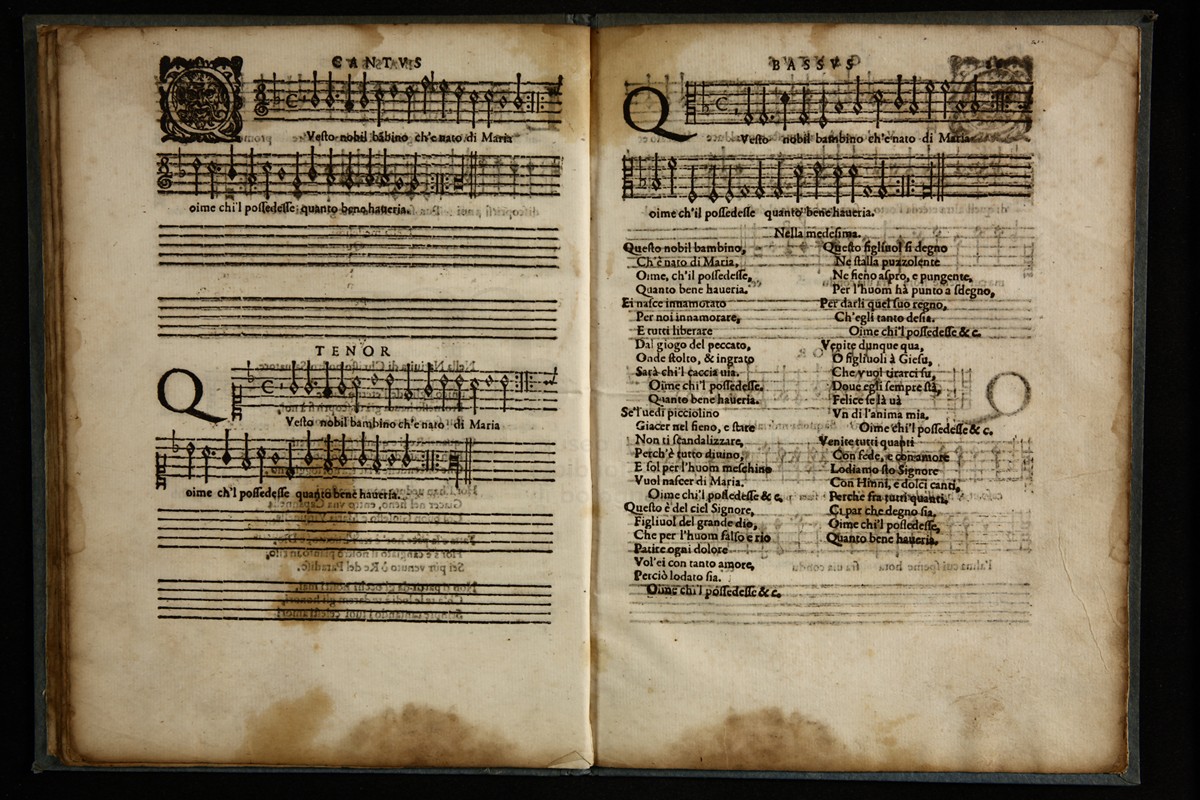 CANTVS
Vesto nobil bābino ch'e nato di Maria
oime chi'l possedesse quanto bene haueria.
TENOR
Q
Vesto nobil bambino ch'e nato di Maria
oime ch'l possedesse quanto bene haueria.
BASSVS
Q
Vesto nobil bambino ch'e nato di Maria
oime ch'il possedesse quanto bene haueria.
Nella medesima.
Questo nobil bambino,
Ch'è nato di Maria,
Oime, ch'il possedesse,
Quanto bene haueria.
Ei nasce innamorato
Per noi innamorare,
E tutti liberare
Dal giogo del peccato,
Onde stolto, & ingrato
Sarà chi'l caccia uia.
Oime chi'l possedesse.
Quanto bene haueria.
Se'l uedi picciolino
Giacer nel fieno, e stare
Non ti scandalizzare,
Perch'è tutto diuino,
E sol per l'huom meschino
Vuol nascer di Maria.
Oime chi'l possedesse & c.
Questo è del ciel Signore,
Figliuol del grande dio,
Che per l'huom falso e rio
Patire ogni dolore
Vol'ei con tanto amore,
Perciò lodato sia.
Oime chi'l possedesse & c.
Questo figliuol si degno
Ne stalla puzzolente
Ne fieno aspro, e pungente,
Per l'huom hà punto a sdegno,
Per darli quel suo regno,
Ch'egli tanto desia.
Oime chi'l possedesse & c.
Venite dunque qua,
O figliuoli à Giesu,
Che vuol tirarci su,
Doue egli sempre stà,
Felice se là uà
Vn di l'anima mia.
Oime chi'l possedesse & c.
Venite tutti quanti
Con fede, e con amore
Lodiamo sto Signore
Con Hinni, e dolci canti,
Perche fra tutti quanti,
Ci par che degno sia.
Oime chi'l possedesse,
Quanto bene haueria.